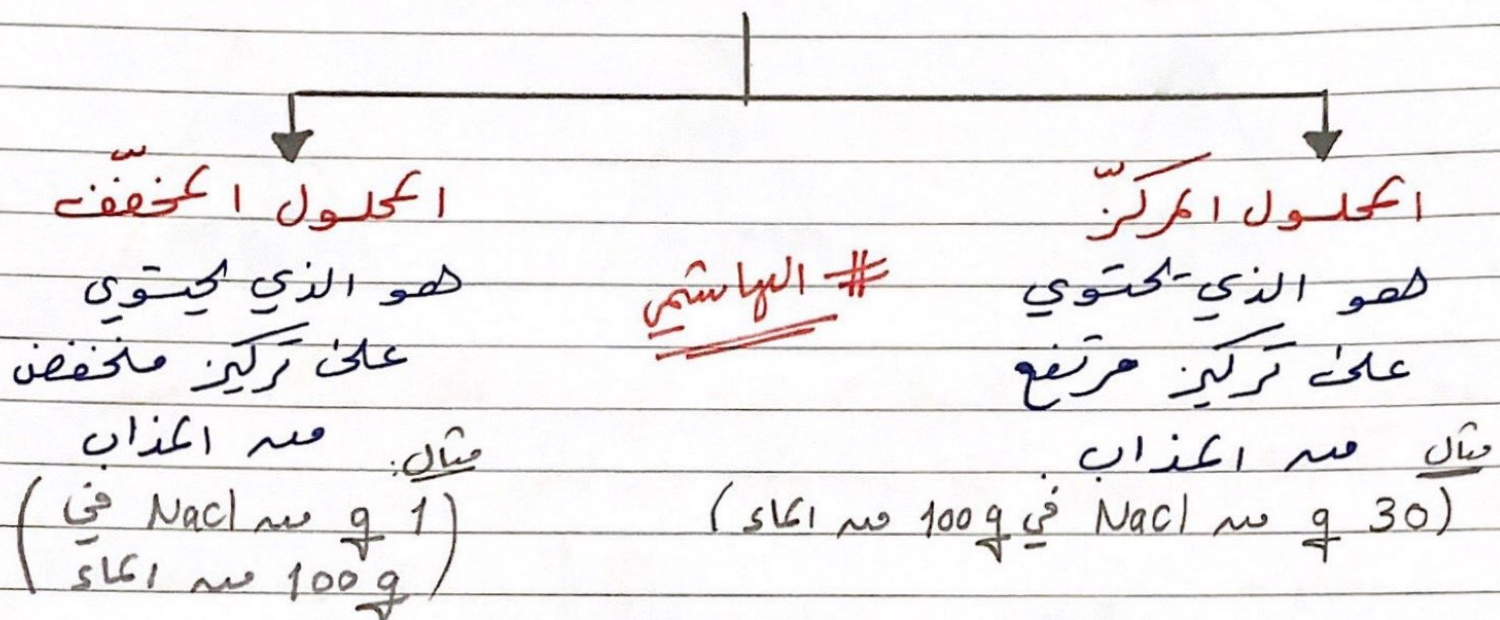 المحلول المركّز
هو الذي يحتوي
على تركيز مرتفع
من المذاب.
مثال
(30 g من NaCl في 100 g من الماء)
#الهاشمي
المحلول المخفّف
هو الذي يحتوي
على تركيز منخفض
من المذاب
مثال:
(1 g من NaCl في
100 g من الماء)